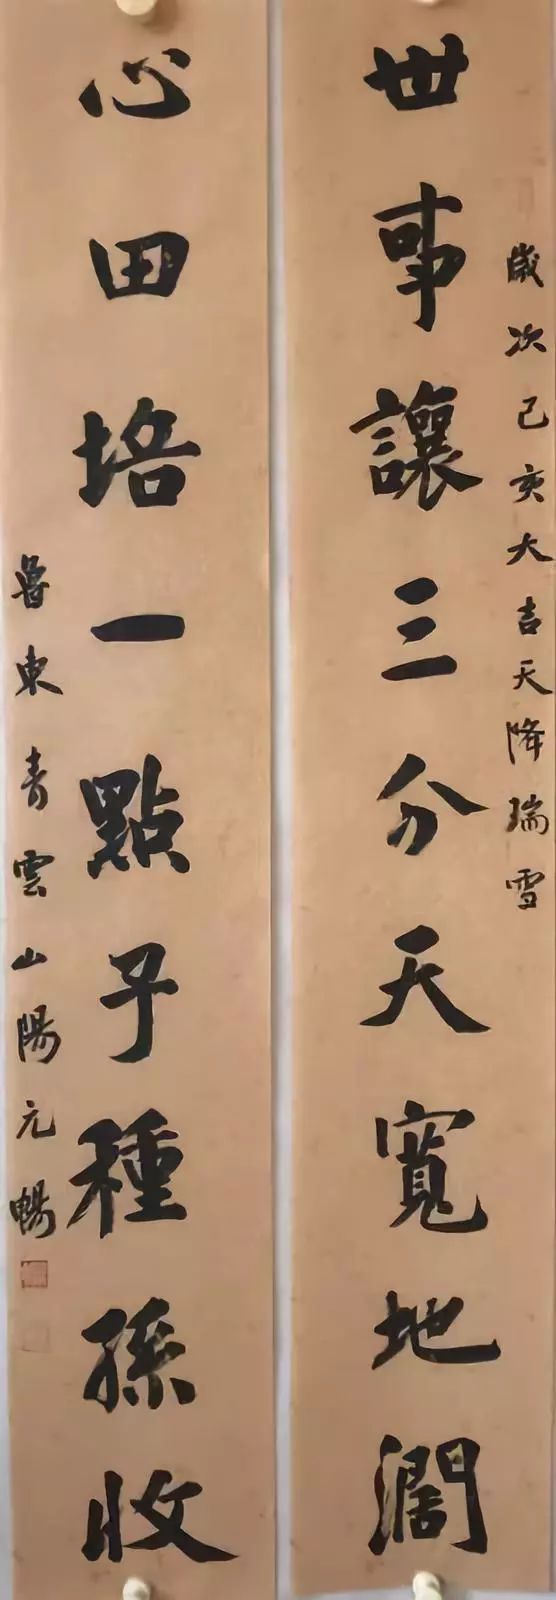 歲次己亥大吉天降瑞雪
世事讓三分天寬地闊
心田培一點子種孫收
魯東青雲山陽元暢